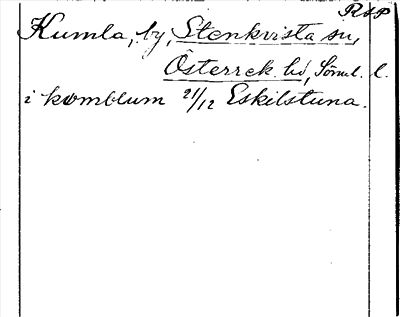 R&P
Kumla, by, Stenkvista sn,
Österrek. hd, Söml. l.
i komblum 21/12 Eskilstuna.